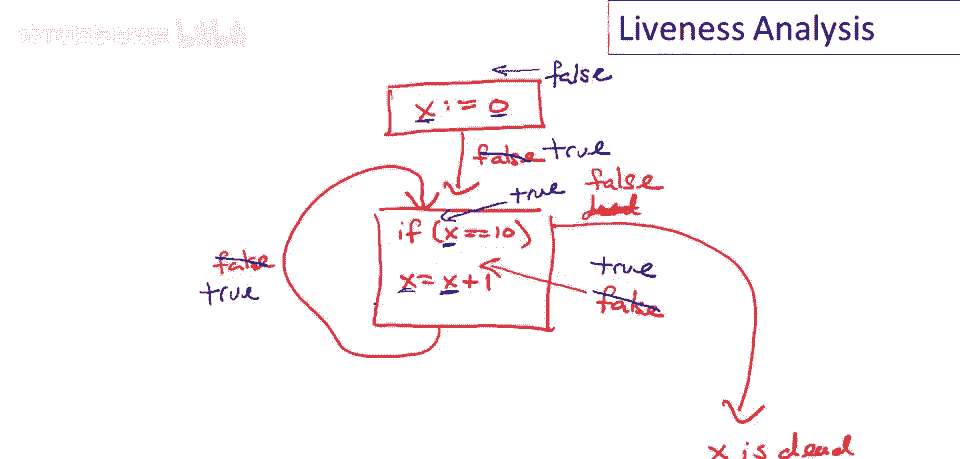 Liveness Analysis
false
x := 0
false true
true
false
dead
if (x==10)
x = x+1
false
true
true
false
x is dead